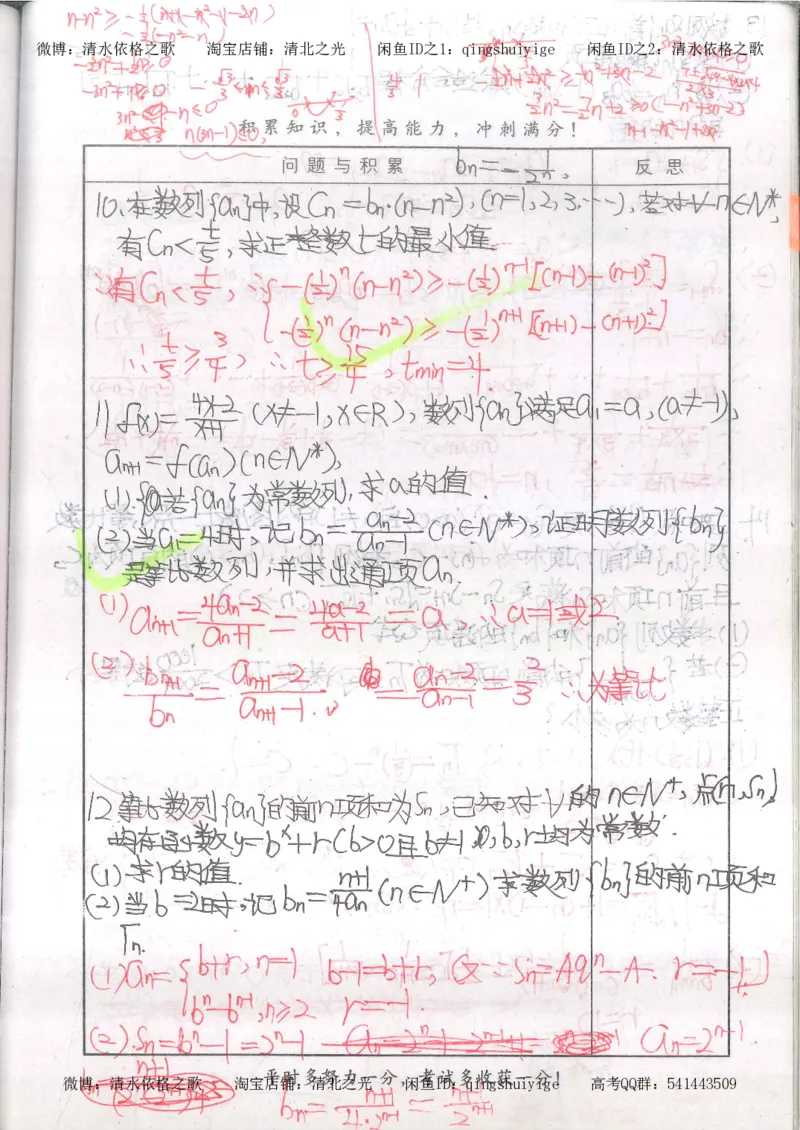 n-n²≥-½(n+1-n²-1-2n)
微博：清水依格之歌 淘宝店铺：清北之光 闲鱼ID之1：qingshuiyige 闲鱼ID之2：清水依格之歌
积累知识，提高能力，冲刺满分！
问题与积累 bn=-1/2ⁿ, 反思
10.在数列{an}中,设Cn=bn·(n-n²),(n=1,2,3,…),若对∀n∈N*,
有Cn<t/5,求正整数t的最小值.
∵有Cn<t/5, ∴{-(½)ⁿ(n-n²)≥-(½)ⁿ⁻¹[(n-1)-(n-1)²]
-(½)ⁿ(n-n²)≥-(½)ⁿ⁺¹[(n+1)-(n+1)²]
∴t/5≥3/4, ∴t≥15/4, tmin=4.
11.f(x)=(4x-2)/(x+1)(x≠-1,x∈R),数列{an}满足a₁=a,(a≠-1),
an+1=f(an)(n∈N*),
(1).若{an}为常数列,求a的值.
(2)当a₁=4时,记bn=(an-2)/(an-1)(n∈N*),证明数列{bn}
是等比数列,并求出通项an.
(1)an+1=(4an-2)/(an+1)=(4a-2)/(a+1)=a, ∴a=1或2
(2)bn+1/bn=(an+1-2)/(an+1-1)·(an-2)/(an-1)=2/3 ∴为等比
12.等比数列{an}的前n项和为Sn,已知对∀的n∈N⁺,点(n,Sn)
均在函数y=bˣ+r(b>0且b≠1,b,r均为常数.
(1)求r的值.
(2)当b=2时,记bn=(n+1)/4an(n∈N⁺)求数列{bn}的前n项和
Tn.
(1)an={b+r,n=1 b-1=b+r, (又∵Sn=Aqⁿ-A. r=-1)
bⁿ-bⁿ⁻¹,n≥2 r=-1.
(2).Sn=bⁿ-1=2ⁿ-1 an=2ⁿ⁻¹.
平时多努力一分，考试多收获一分！
微博：清水依格之歌 淘宝店铺：清北之光 闲鱼ID：qingshuiyige 高考QQ群：541443509
bn=(n+1)/(4·2ⁿ⁻¹)=(n+1)/2ⁿ⁺¹